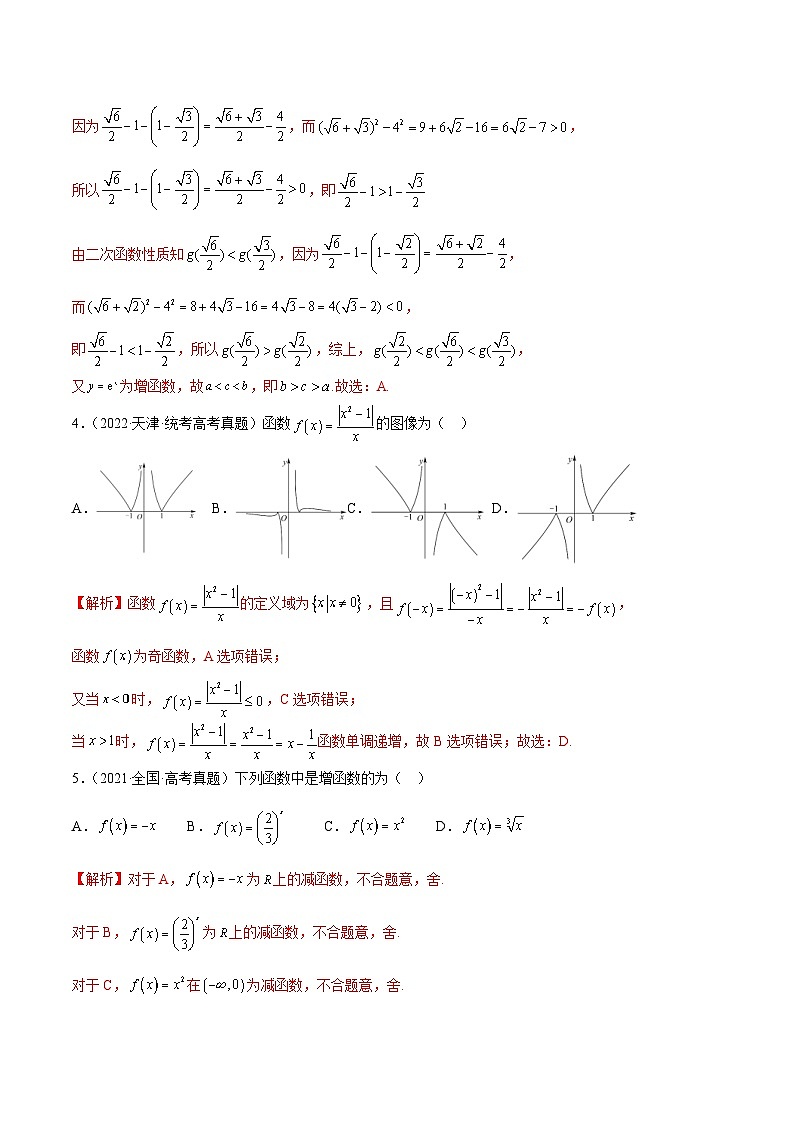 因为√6/2-1-(1-√3/2)=(√6+√3)/2-4/2,而(√6+√3)²-4²=9+6√2-16=6√2-7>0,
所以√6/2-1-(1-√3/2)=(√6+√3)/2-4/2>0,即√6/2-1>1-√3/2
由二次函数性质知g(√6/2)<g(√3/2),因为√6/2-1-(1-√2/2)=(√6+√2)/2-4/2,
而(√6+√2)²-4²=8+4√3-16=4√3-8=4(√3-2)<0,
即√6/2-1<1-√2/2,所以g(√6/2)>g(√2/2),综上,g(√2/2)<g(√6/2)<g(√3/2),
又y=eˣ为增函数,故a<c<b,即b>c>a.故选:A.
4.(2022·天津·统考高考真题)函数f(x)=|x²-1|/x的图像为( )
A. y -1 O 1 x B. y O x C. y -1 O 1 x D. y -1 O 1 x
【解析】函数f(x)=|x²-1|/x的定义域为{x|x≠0},且f(-x)=|(-x)²-1|/-x=-|x²-1|/x=-f(x),
函数f(x)为奇函数,A选项错误;
又当x<0时,f(x)=|x²-1|/x≤0,C选项错误;
当x>1时,f(x)=|x²-1|/x=(x²-1)/x=x-1/x函数单调递增,故B选项错误;故选:D.
5.(2021·全国·高考真题)下列函数中是增函数的为( )
A.f(x)=-x B.f(x)=(2/3)ˣ C.f(x)=x² D.f(x)=∛x
【解析】对于A,f(x)=-x为R上的减函数,不合题意,舍.
对于B,f(x)=(2/3)ˣ为R上的减函数,不合题意,舍.
对于C,f(x)=x²在(-∞,0)为减函数,不合题意,舍.